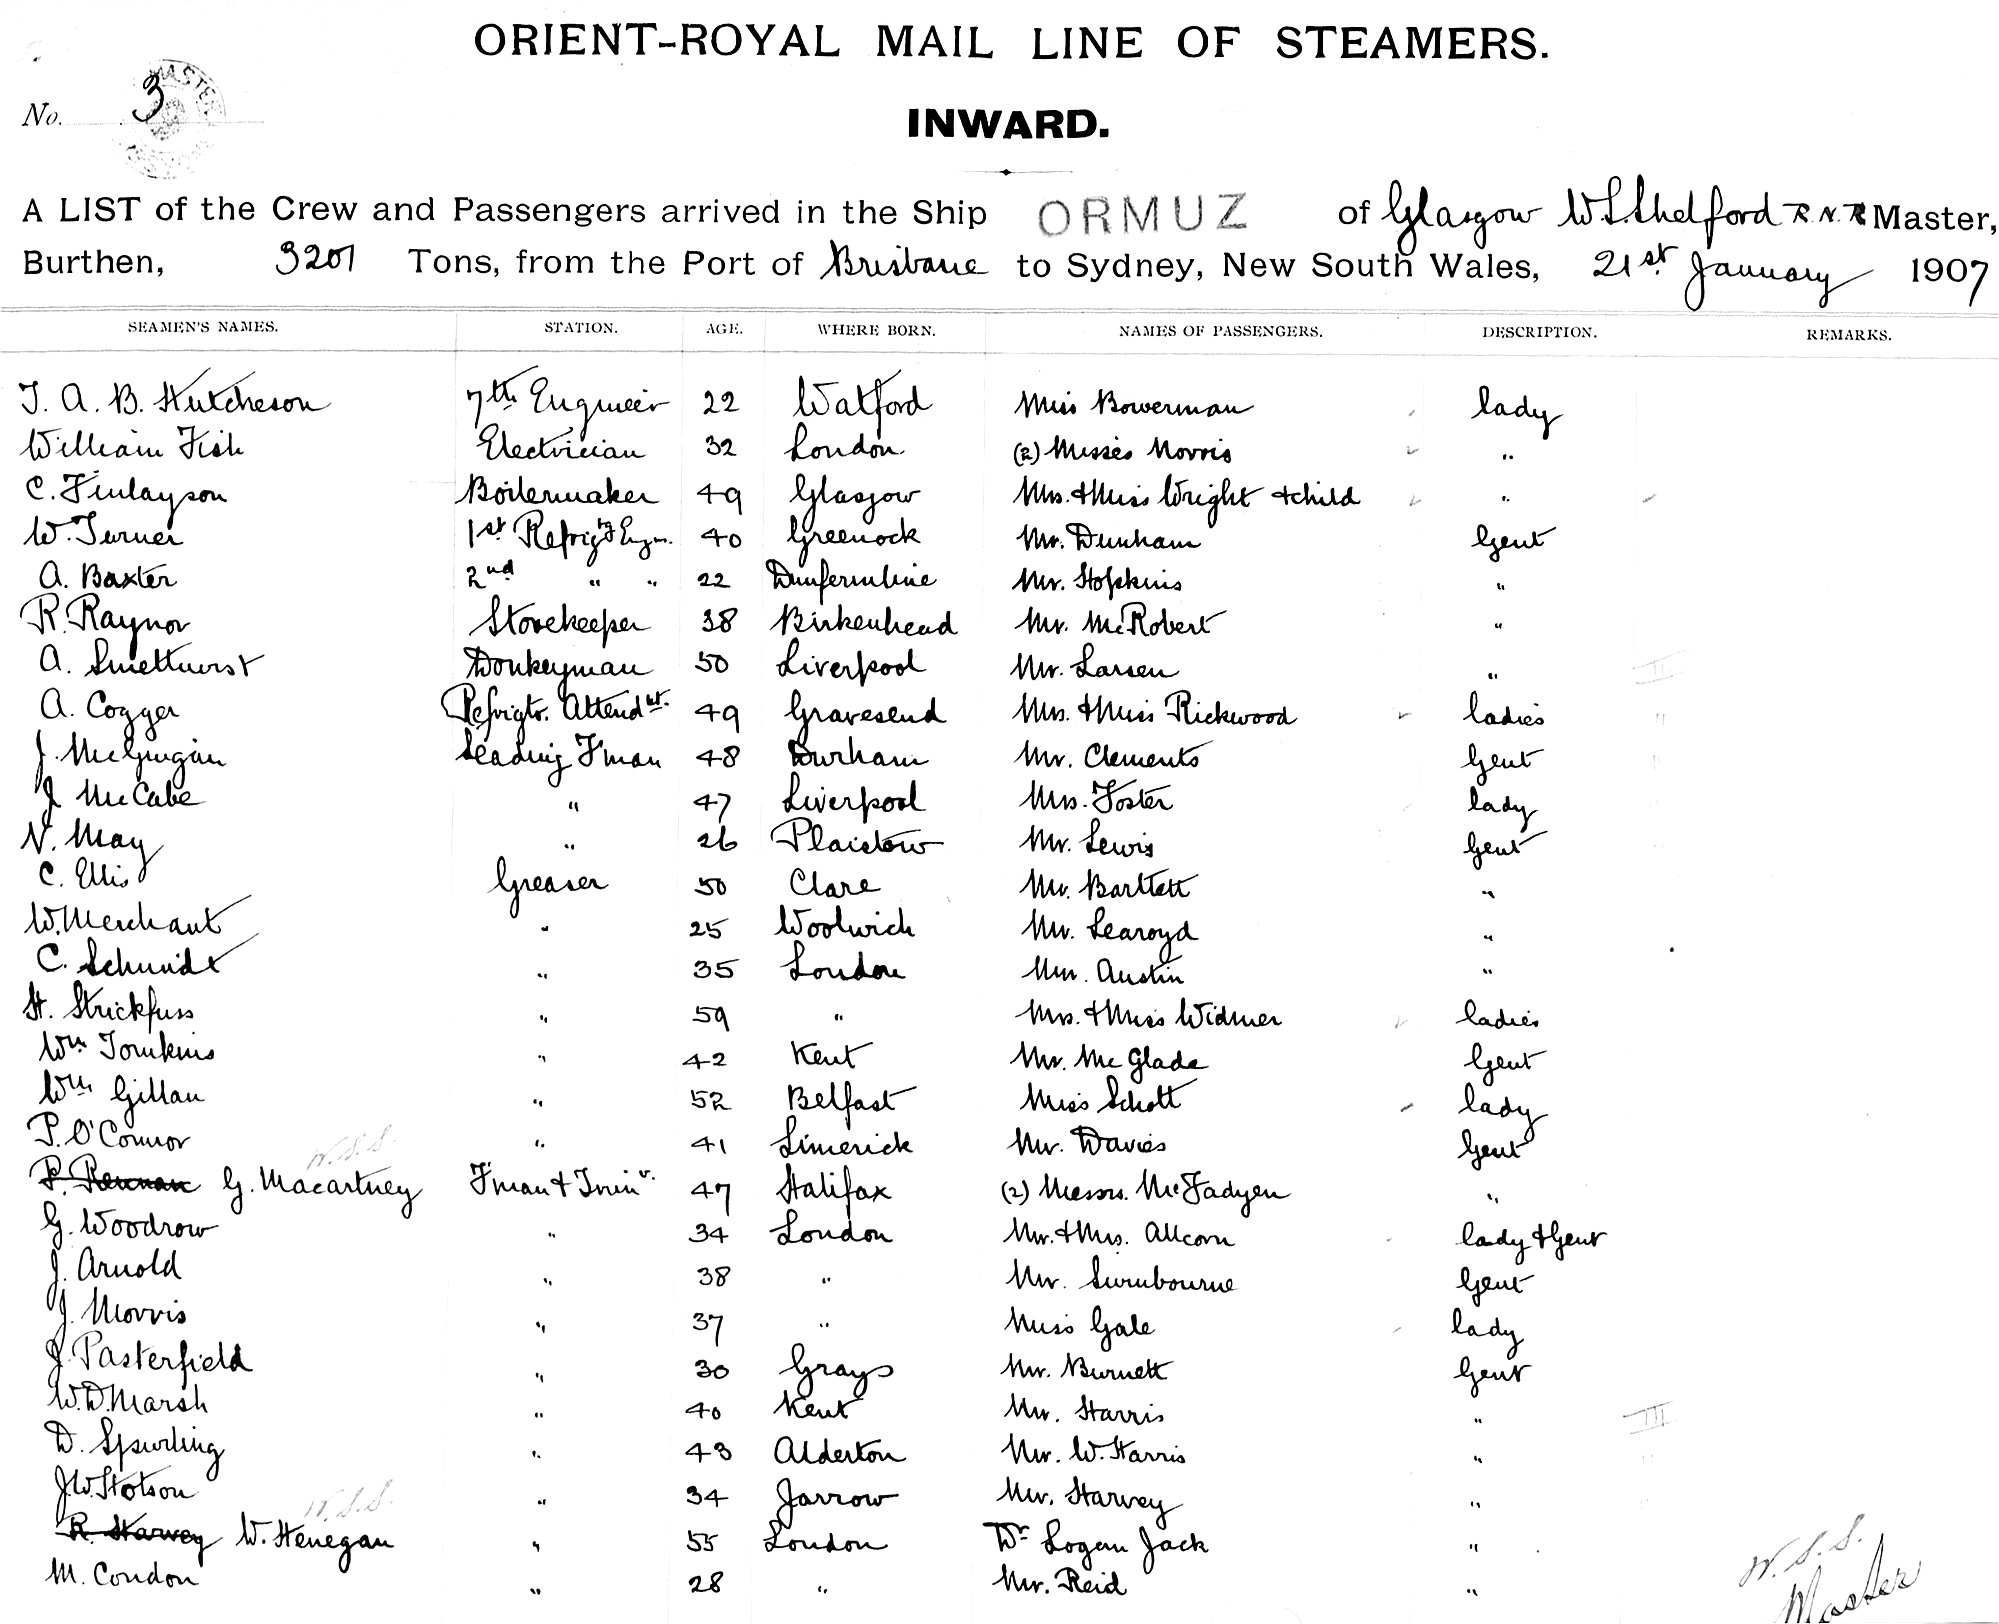 ORIENT-ROYAL MAIL LINE OF STEAMERS.
No. 3
MASTER
INWARD.
A LIST of the Crew and Passengers arrived in the Ship ORMUZ of Glasgow W.S. Shelford R.N.R Master,
Burthen, 3201 Tons, from the Port of Brisbane to Sydney, New South Wales, 21st January 1907
SEAMEN'S NAMES. STATION. AGE. WHERE BORN. NAMES OF PASSENGERS. DESCRIPTION. REMARKS.
T. A. B. Hutcheson 7th Engineer 22 Watford Miss Bowerman lady
William Fish Electrician 32 London (2) Misses Norris "
C. Finlayson Boilermaker 49 Glasgow Mrs. & Miss Wright & child "
W. Turner 1st Refrigtg Engnr. 40 Greenock Mr. Dunham Gent
A. Baxter 2nd " " 22 Dunfermline Mr. Hopkins "
R. Raynor Storekeeper 38 Birkenhead Mr. McRobert "
A. Smethurst Donkeyman 50 Liverpool Mr. Larsen " II
A. Cogger Refrigtr. Attendnt. 49 Gravesend Mrs. & Miss Rickwood ladies "
J. McGuigan Leading F'man 48 Durham Mr. Clements Gent "
J. McCabe " 47 Liverpool Mrs. Foster lady
N. May " 26 Plaistow Mr. Lewis Gent
C. Ellis Greaser 50 Clare Mr. Bartlett "
W. Merchant " 25 Woolwich Mr. Learoyd "
C. Schmidt " 35 London Mr. Austin "
H. Strickfuss " 59 " Mrs. & Miss Widmer ladies
Wm Tomkins " 42 Kent Mr. McGlade Gent
Wm Gillan " 52 Belfast Miss Schott lady
P. O'Connor " 41 Limerick Mr. Davies Gent
W.S.S.
P. Rennan G. Macartney F'man & Trimr. 47 Halifax (2) Messrs. McFadyen "
G. Woodrow " 34 London Mr. & Mrs. Allcorn lady & Gent
J. Arnold " 38 " Mr. Swinbourne Gent
J. Morris " 37 " Miss Gale lady
J. Pasterfield " 30 Grays Mr. Burnett Gent
W.D. Marsh " 40 Kent Mr. Harris " III
D. Spurling " 43 Alderton Mr. W. Harris "
J.W. Hotson " 34 Jarrow Mr. Harvey "
W.S.S.
R. Harvey W. Henegan " 55 London Dr Logan Jack "
M. Condon " 28 " Mr. Reid "
W.S.S.
Master